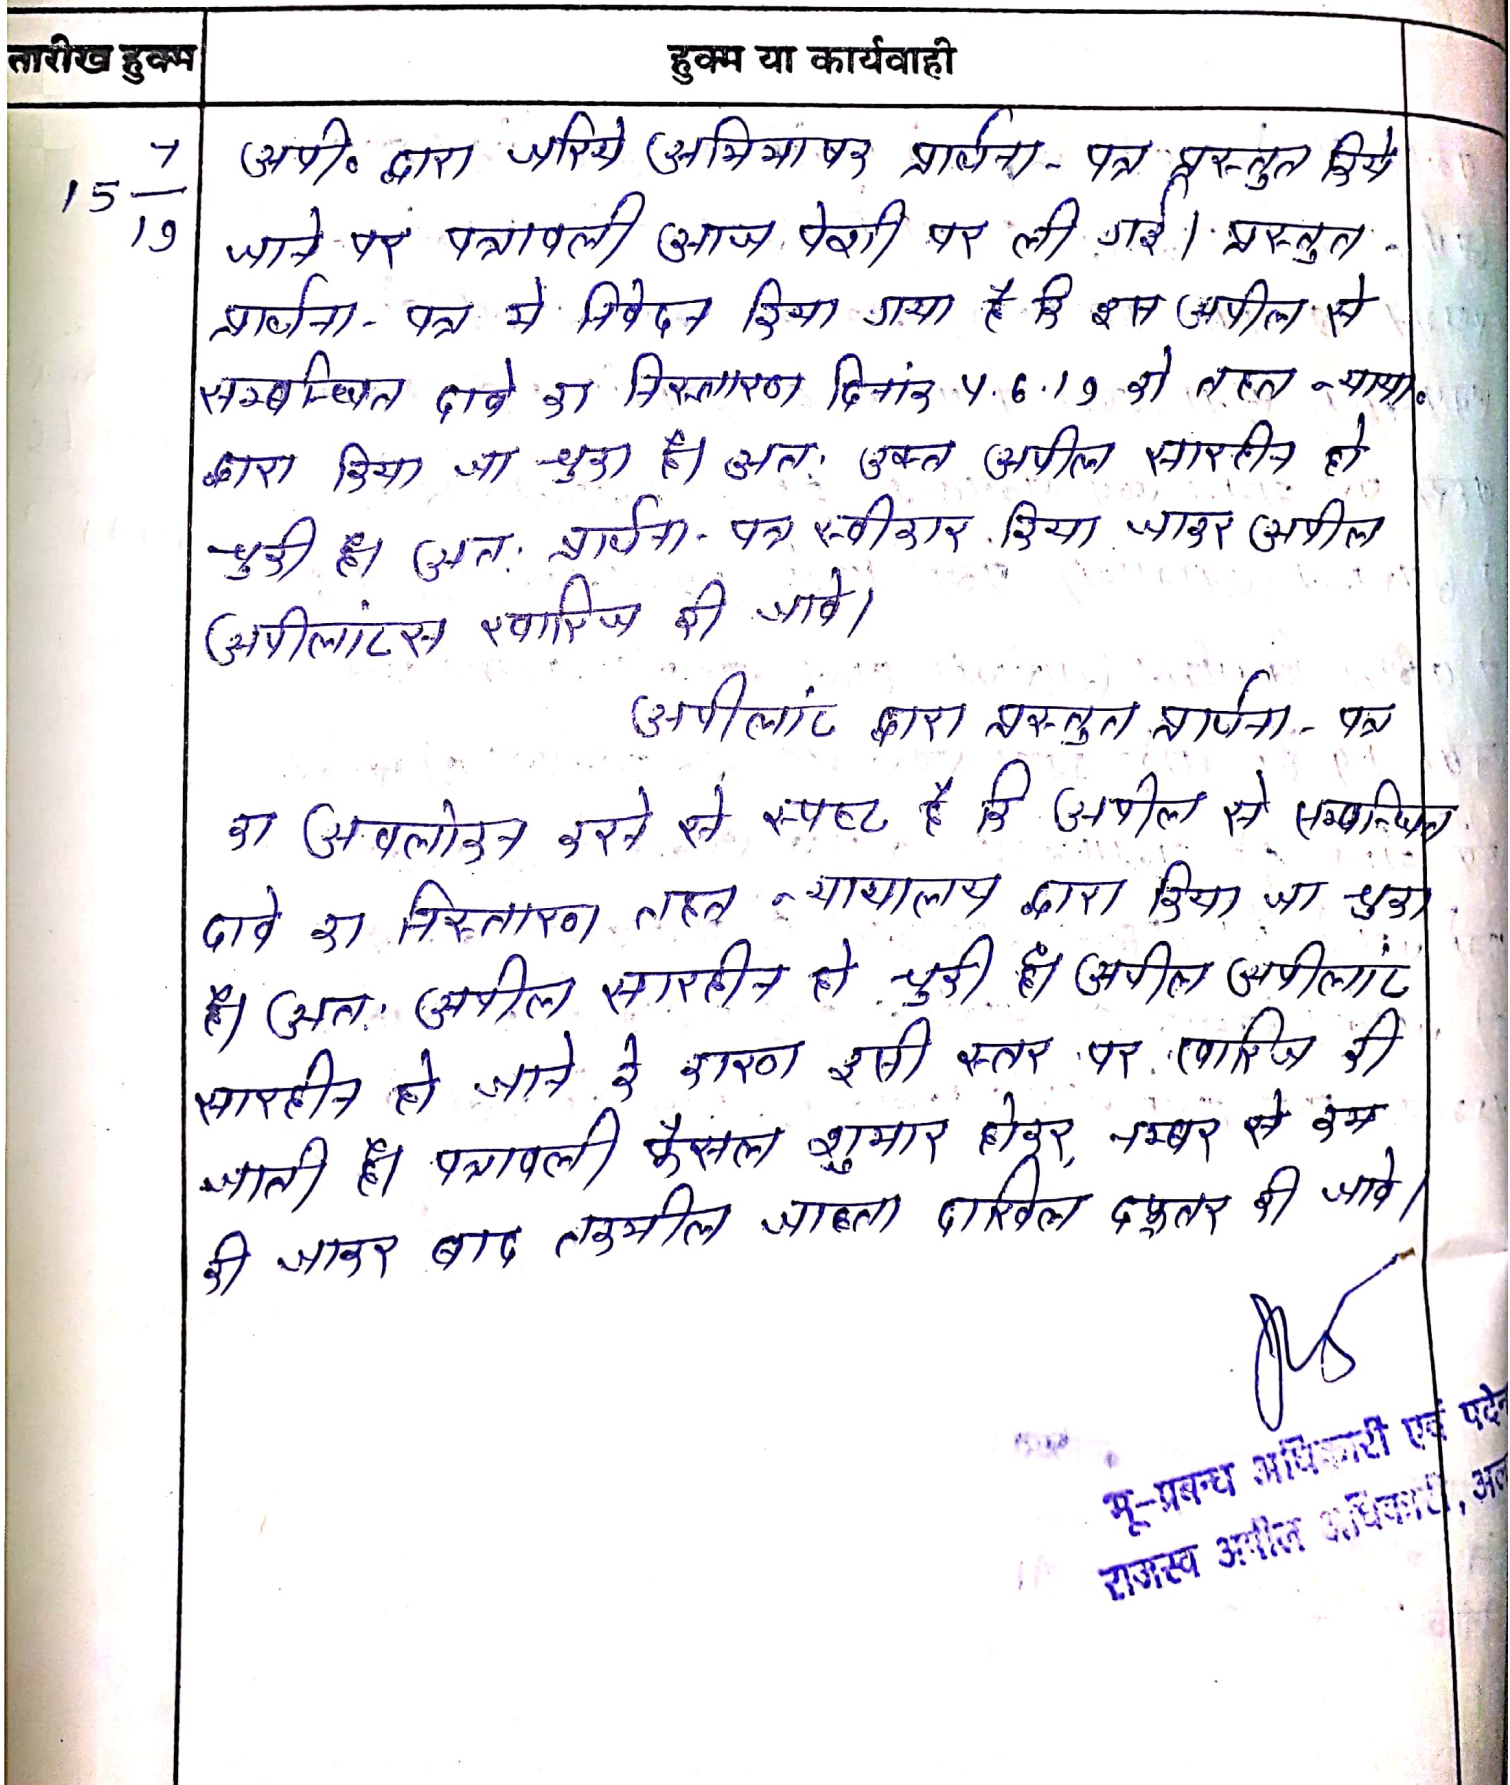 तारीख हुक्म
हुक्म या कार्यवाही
15 7/19
अपी० द्वारा जरिये अभिभाषक प्रार्थना-पत्र प्रस्तुत किये
जाने पर पत्रावली आज पेशी पर ली गई। प्रस्तुत
प्रार्थना-पत्र मे निवेदन किया गया है कि इस अपील से
सम्बन्धित दावे का निस्तारण दिनांक 4.6.19 को तहत न्याया०
द्वारा किया जा चुका है। अत: उक्त अपील सारहीन हो
चुकी है। अत: प्रार्थना-पत्र स्वीकार किया जाकर अपील
अपीलांटस खारिज की जावे।
अपीलांट द्वारा प्रस्तुत प्रार्थना-पत्र
का अवलोकन करने से स्पष्ट है कि अपील से सम्बन्धित
दावे का निस्तारण तहत न्यायालय द्वारा किया जा चुका
है। अत: अपील सारहीन हो चुकी है। अपील अपीलांट
सारहीन हो जाने के कारण इसी स्तर पर खारिज की
जाती है। पत्रावली फैसल शुमार होकर, नम्बर से कम
की जाकर बाद तकमील जाब्ता दाखिल दफ्तर की जावे।
भू-प्रबन्ध अधिकारी एवं पदेन
राजस्व अपील अधिकारी,